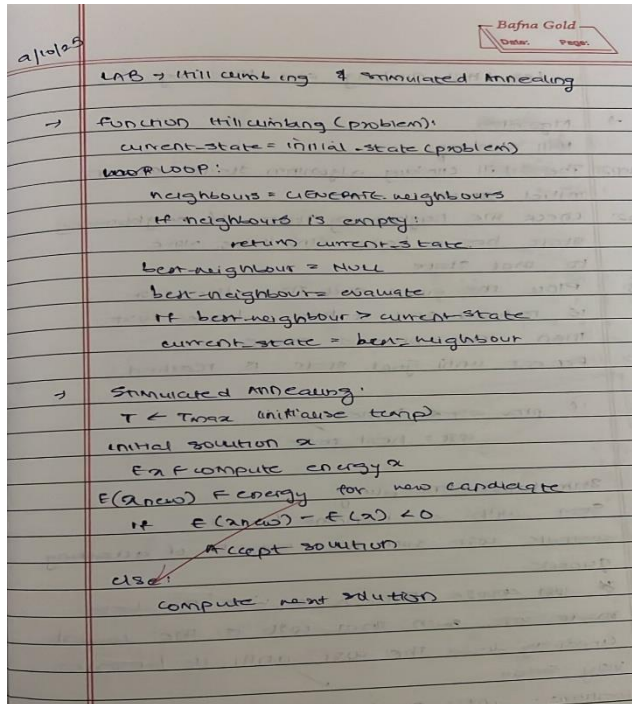 Bafna Gold
Date: Page:
9/10/25
LAB → Hill climbing & Stimulated Annealing
→ function Hill climbing (problem):
current-state = initial-state (problem)
LOOP:
neighbours = GENERATE. neighbours
If neighbours is empty:
return current-state
best-neighbour = NULL
best-neighbour = evaluate
If best-neighbour > current-state
current-state = best-neighbour
→ Stimulated Annealing:
T ← Tmax (initialise temp)
initial solution x
Ex ← compute energy x
E(xnew) ← energy for new candidate
if E(xnew) - E(x) < 0
Accept solution
else:
compute next solution